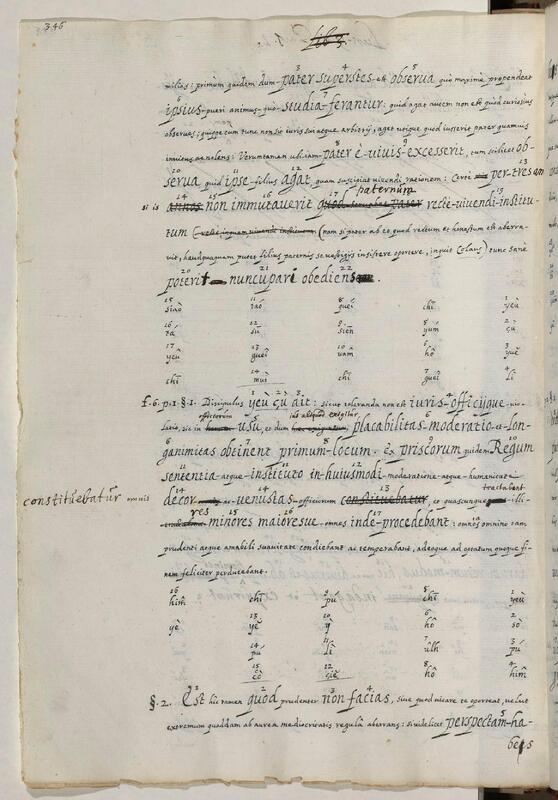 346
lib. 2.
filius: primùm quidem dum pater superstes est observa quò maximè propendeat
ipsius pueri animus, quò studia ferantur: quid agat autem non est quod curiosius
observes; quippe cum tunc non sit iuris sui atque arbitrij, aget utique quod iusserit pater quamvis
invitus ac nolens: Veruntamen ubi iam pater è vivis excesserit, tum scilicet ob-
serva quid ipse filius agat, quam suscipiat vivendi rationem: Certè per tres an
paternum
si is annos non immutaverit recte vivendi institu-
tum (nam si pater ab eo quod rectum et honestum est aberra-
vit, haudquaquam putet filius paternis se vestigijs insistere oportere, inquit Colaus) tunc sanè
poterit nuncupari obediens.
15 siaò 11 taó 8 gueî 4 chî 1 yeù
16 tá 12 sū 9 siēn 5 yúm 2 çù
17 yeû 13 gueî 10 vâm 6 hô 3 yuĕ
chī 14 mùi chī 7 gueî 4 lì
f.6. p.1. §.1. Discipulus yeù çù ait: sicut toleranda non est iuris officijque vio-
officiorum ius aliquod exigitur
latio, sic in usu, et dum placabilitas moderatio et lon-
ganimitas obtinent primum locum. ex priscorum quidem Regum
sententia atque instituto in huiusmodi moderatione atque humanitate
tractabant
constituebatur omnis decor ac venustas officiorum constituebatur, et quascunque illi
res minores maioresve omnes inde procedebant: omnia omnino tam
prudenti atque amabili suavitate condiebant ac temperabant, adeoque ad optatum quoque fi-
nem feliciter perducebant.
16 hîm chī 9 pŭ 5 chī 1 yeù
yè 13 yĕ 10 ỳ 6 hô 2 sò
14 pŭ 11 lì 7 ûlh 3 pŭ
15 cò 12 ciĕ 8 hô 4 hîm
§.2. Est hic tamen quod prudenter non facias, sive quod vitare te oporteat, velut
extremum quoddam ab aurea mediocritatis regulâ aberrans: si videlicet perspectam ha-
bens